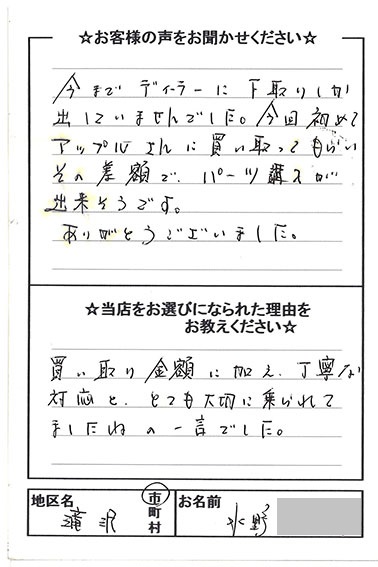 ☆お客様の声をお聞かせください☆
今まで ディーラーに 下取りしか
出していませんでした。今回 初めて
アップルさんに 買い取ってもらい
その 差額で、パーツ購入が
出来そうです。
ありがとうございました。
☆当店をお選びになられた理由を
お教えください☆
買い取り 金額に加え、丁寧な
対応と、とても大切に乗られて
ましたねの一言でした。
地区名 市町村 お名前
滝沢 水野